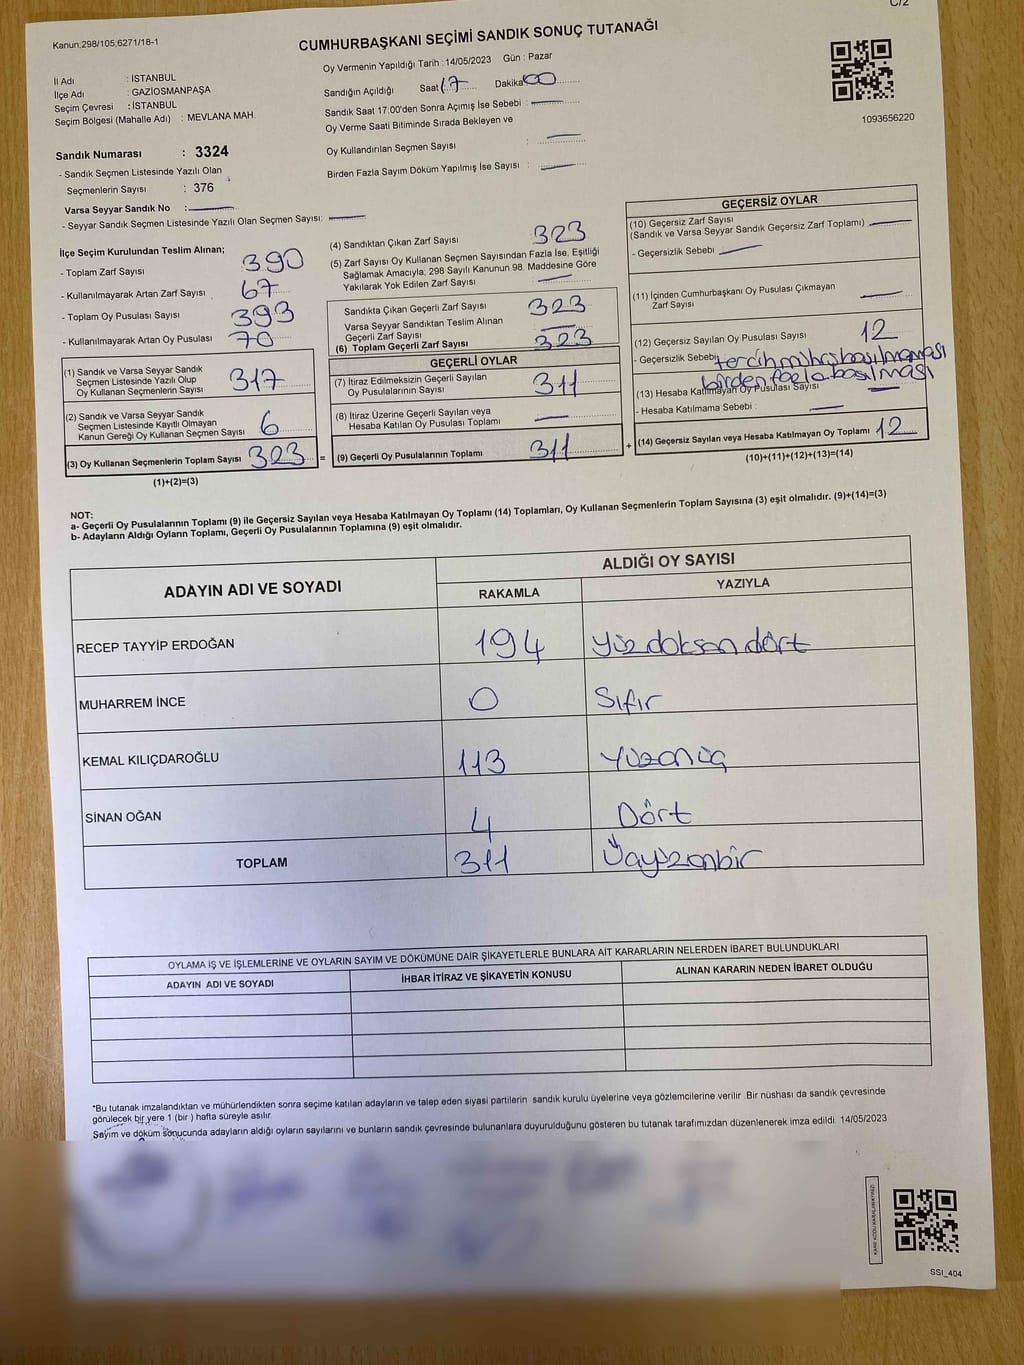 C/2
Kanun:298/105;6271/18-1
CUMHURBAŞKANI SEÇİMİ SANDIK SONUÇ TUTANAĞI
İl Adı : İSTANBUL
İlçe Adı : GAZİOSMANPAŞA
Seçim Çevresi : İSTANBUL
Seçim Bölgesi (Mahalle Adı) : MEVLANA MAH.
Oy Vermenin Yapıldığı Tarih : 14/05/2023 Gün : Pazar
Sandığın Açıldığı Saat 17 Dakika 00
Sandık Saat 17:00'den Sonra Açımış İse Sebebi :
Oy Verme Saati Bitiminde Sırada Bekleyen ve
Oy Kullandırılan Seçmen Sayısı :
Birden Fazla Sayım Döküm Yapılmış İse Sayısı :
1093656220
Sandık Numarası : 3324
- Sandık Seçmen Listesinde Yazılı Olan
Seçmenlerin Sayısı : 376
Varsa Seyyar Sandık No :
- Seyyar Sandık Seçmen Listesinde Yazılı Olan Seçmen Sayısı:
İlçe Seçim Kurulundan Teslim Alınan;
- Toplam Zarf Sayısı 390
- Kullanılmayarak Artan Zarf Sayısı 67
- Toplam Oy Pusulası Sayısı 393
- Kullanılmayarak Artan Oy Pusulası 70
(1) Sandık ve Varsa Seyyar Sandık
Seçmen Listesinde Yazılı Olup
Oy Kullanan Seçmenlerin Sayısı 317
(2) Sandık ve Varsa Seyyar Sandık
Seçmen Listesinde Kayıtlı Olmayan
Kanun Gereği Oy Kullanan Seçmen Sayısı 6
(3) Oy Kullanan Seçmenlerin Toplam Sayısı 323 =
(1)+(2)=(3)
(4) Sandıktan Çıkan Zarf Sayısı 323
(5) Zarf Sayısı Oy Kullanan Seçmen Sayısından Fazla İse, Eşitliği
Sağlamak Amacıyla; 298 Sayılı Kanunun 98. Maddesine Göre
Yakılarak Yok Edilen Zarf Sayısı
Sandıkta Çıkan Geçerli Zarf Sayısı 323
Varsa Seyyar Sandıktan Teslim Alınan
Geçerli Zarf Sayısı
(6) Toplam Geçerli Zarf Sayısı 323
GEÇERLİ OYLAR
(7) İtiraz Edilmeksizin Geçerli Sayılan
Oy Pusulalarının Sayısı 311
(8) İtiraz Üzerine Geçerli Sayılan veya
Hesaba Katılan Oy Pusulası Toplamı
(9) Geçerli Oy Pusulalarının Toplamı 311 +
GEÇERSİZ OYLAR
(10) Geçersiz Zarf Sayısı
(Sandık ve Varsa Seyyar Sandık Geçersiz Zarf Toplamı)
- Geçersizlik Sebebi
(11) İçinden Cumhurbaşkanı Oy Pusulası Çıkmayan
Zarf Sayısı
(12) Geçersiz Sayılan Oy Pusulası Sayısı 12
- Geçersizlik Sebebi tercih mührü basılmaması
birden fazla basılması
(13) Hesaba Katılmayan Oy Pusulası Sayısı
- Hesaba Katılmama Sebebi :
(14) Geçersiz Sayılan veya Hesaba Katılmayan Oy Toplamı 12
(10)+(11)+(12)+(13)=(14)
NOT:
a- Geçerli Oy Pusulalarının Toplamı (9) ile Geçersiz Sayılan veya Hesaba Katılmayan Oy Toplamı (14) Toplamları, Oy Kullanan Seçmenlerin Toplam Sayısına (3) eşit olmalıdır. (9)+(14)=(3)
b- Adayların Aldığı Oyların Toplamı, Geçerli Oy Pusulalarının Toplamına (9) eşit olmalıdır.
ADAYIN ADI VE SOYADI ALDIĞI OY SAYISI
RAKAMLA YAZIYLA
RECEP TAYYİP ERDOĞAN 194 yüz doksan dört
MUHARREM İNCE 0 Sıfır
KEMAL KILIÇDAROĞLU 113 Yüzonüç
SİNAN OĞAN 4 Dört
TOPLAM 311 Üçyüzonbir
OYLAMA İŞ VE İŞLEMLERİNE VE OYLARIN SAYIM VE DÖKÜMÜNE DAİR ŞİKAYETLERLE BUNLARA AİT KARARLARIN NELERDEN İBARET BULUNDUKLARI
ADAYIN ADI VE SOYADI İHBAR İTİRAZ VE ŞİKAYETİN KONUSU ALINAN KARARIN NEDEN İBARET OLDUĞU
*Bu tutanak imzalandıktan ve mühürlendikten sonra seçime katılan adayların ve talep eden siyasi partilerin sandık kurulu üyelerine veya gözlemcilerine verilir. Bir nüshası da sandık çevresinde
görülecek bir yere 1 (bir) hafta süreyle asılır.
Sayım ve döküm sonucunda adayların aldığı oyların sayılarını ve bunların sandık çevresinde bulunanlara duyurulduğunu gösteren bu tutanak tarafımızdan düzenlenerek imza edildi. 14/05/2023
SSI_404